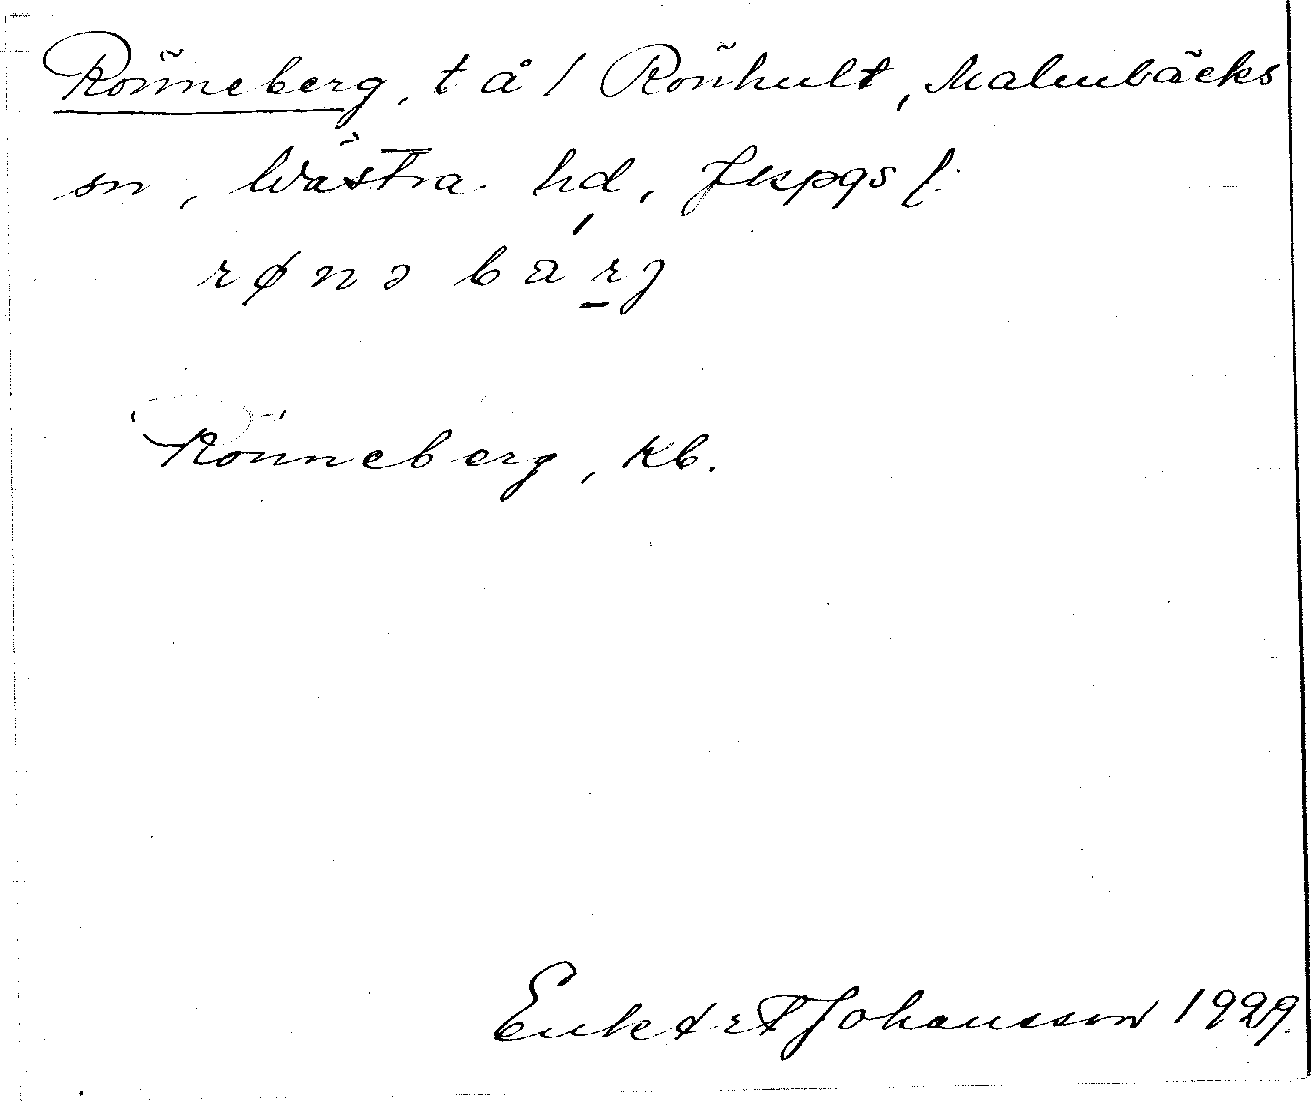 Rönneberg, t å / Rönhult, Malmbäcks
sn, Västra hd, Jkpgs l.
rønə bà́r̲j
Rönneberg, kb.
Johansson 1929.